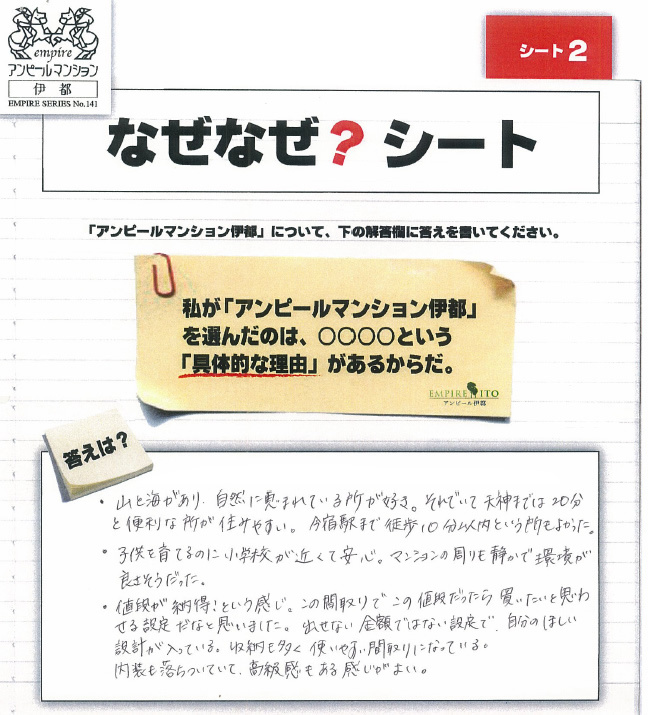 empire
アンピールマンション
伊都
EMPIRE SERIES No.141
シート2
なぜなぜ?シート
「アンピールマンション伊都」について、下の解答欄に答えを書いてください。
私が「アンピールマンション伊都」
を選んだのは、○○○○という
「具体的な理由」があるからだ。
EMPIRE ITO
アンピール伊都
答えは?
・山と海があり、自然に恵まれている所が好き。それでいて天神までは20分
と便利な所が住みやすい。今宿駅まで徒歩10分以内という所もよかった。
・子供を育てるのに小学校が近くて安心。マンションの周りも静かで環境が
良さそうだった。
・値段が納得!という感じ。この間取りでこの値段だったら買いたいと思わ
せる設定だなと思いました。出せない金額ではない設定で、自分のほしい
設計が入っている。収納も多く使いやすい間取りになっている。
内装も落ちついていて、高級感もある感じがよい。